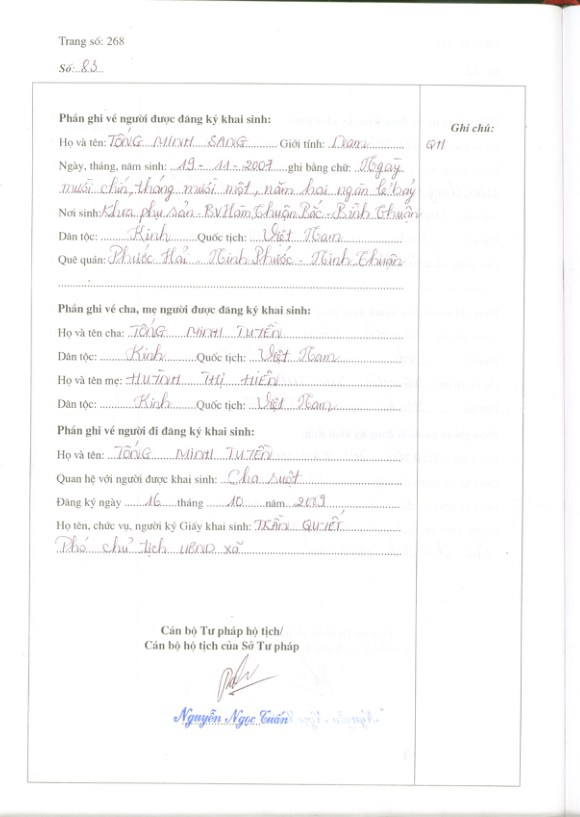 Trang số: 268
Số: 83
Phần ghi về người được đăng ký khai sinh:
Ghi chú:
Họ và tên: TỐNG MINH SANG Giới tính: Nam
QH
Ngày, tháng, năm sinh: 19 - 11 - 2007 ghi bằng chữ: Ngày
mười chín, tháng mười một, năm hai ngàn lẻ bảy
Nơi sinh: Khoa phụ sản - BV Hàm Thuận Bắc - Bình Thuận
Dân tộc: Kinh Quốc tịch: Việt Nam
Quê quán: Phước Hải - Ninh Phước - Ninh Thuận
Phần ghi về cha, mẹ người được đăng ký khai sinh:
Họ và tên cha: TỐNG MINH TUYỀN
Dân tộc: Kinh Quốc tịch: Việt Nam
Họ và tên mẹ: HUỲNH THỊ HIỀN
Dân tộc: Kinh Quốc tịch: Việt Nam
Phần ghi về người đi đăng ký khai sinh:
Họ và tên: TỐNG MINH TUYỀN
Quan hệ với người được khai sinh: Cha ruột
Đăng ký ngày 16 tháng 10 năm
Họ tên, chức vụ, người ký Giấy khai sinh: TRẦN QUYẾT
Phó chủ tịch UBND xã
Cán bộ Tư pháp hộ tịch/
Cán bộ hộ tịch của Sở Tư pháp
Nguyễn Ngọc Tuấn